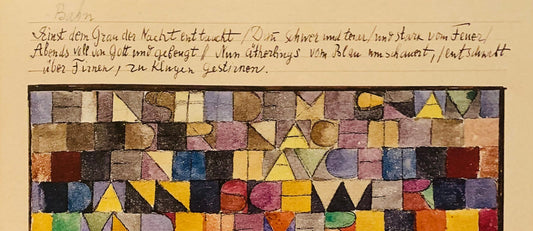 Einst dem Grau der Nacht enttaucht / Dann schwer und teuer / und stark vom Feuer /
Abends voll von Gott und gebeugt // Nun ätherlings vom Blau umschauert, / entschwebt
über Firnen, zu klugen Gestirnen.
EINST DEM GRAU
DER NACHT
ENTTAUCHT
DANN SCHWER